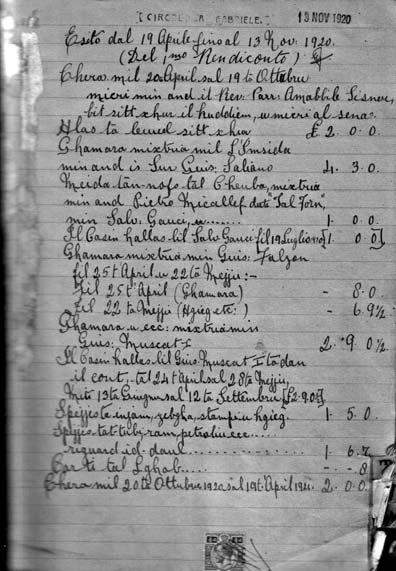 [CIRCOLO S. GABRIELE.]
13 NOV 1920
Esito dal 19 Aprile fino al 13 Nov: 1920.
(Del 1mo Rendiconto)
Chera mil 20 April sal 19 ta Ottubru
micri min and il Rev: Parr: Amabbile Sisner,
bit sitt xhur il huddiem, u micri al sena.
Hlas ta lewwel sitt xhur £ 2. 0. 0.
Ghamara mixtria mil L'Imsida
min and is Sur Giuis: Saliano 4. 3. 0.
Meida tan-nofs tal Cheuba, mixtria
min and Pietro Micallef dett "Tal Forn",
min Salv: Gauci, u....... 1. 0. 0
Il Casin hallas lil Salv: Gauci fil 19 Luglio [1. 0. 0]
Ghamara mixtria min Giuis: Falzon
fil 25 t'April u 22 ta Mejju:-
Fil 25 t'April (Ghamara) - 8. 0.
Fil 22 ta Mejju (Hgieg etc:) - 6. 9½
Ghamara u ecc: mixtria min
Giuis: Muscat 2. 9. 0½
Il Casin hallas lil Giuis: Muscat ta dan
il cont, tal 24 t'April sal 28 ta Mejju,
Mita 13 ta Giugnu sal 12 ta Settembru [£2.9.0½]
Spejjes ta injam, zebgha, stampi u hgieg 1. 5. 0.
Spejjes tat-tubi, ram, petroliu ecc ....
riguard id-dawl............. 1. 6. 7.
Carti tal Lghab..... - - 8
Chera mil 20 ta Ottubru 1920 sal 19 t'April 1921. 2. 0. 0.